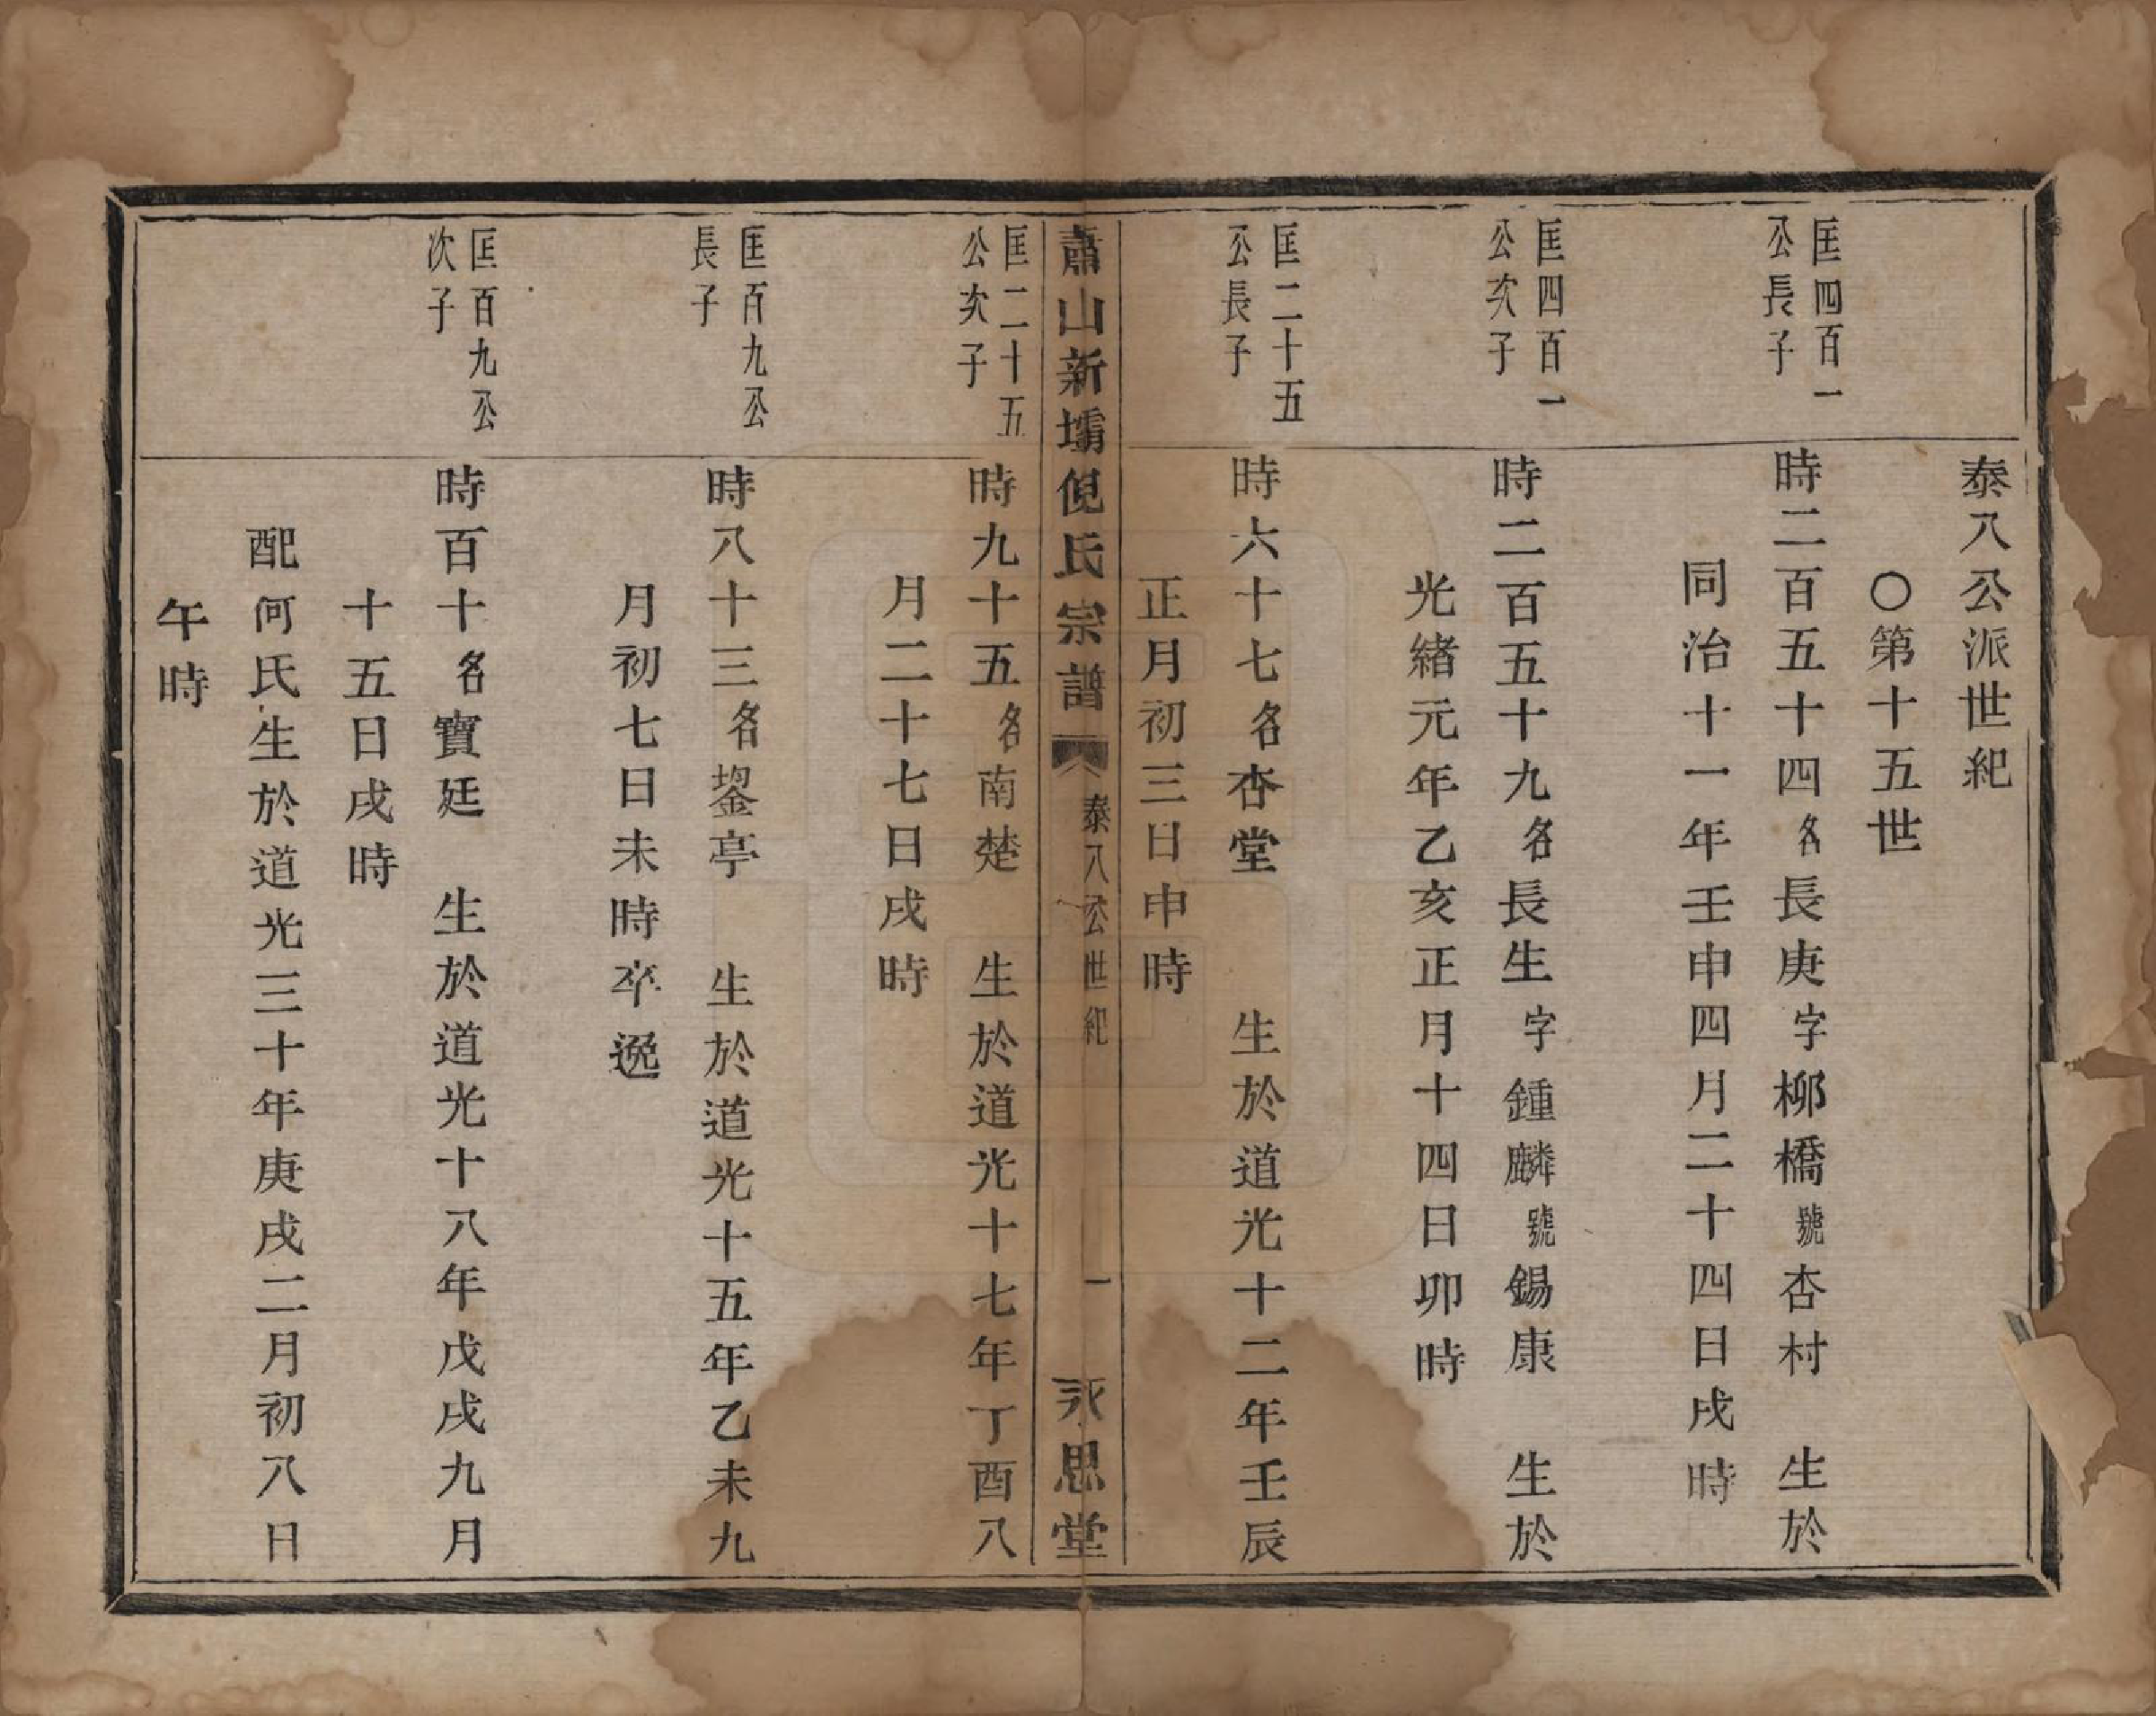 泰八公派世紀
〇第十五世
匡四百一
公長子
時二百五十四名長庚字柳橋號杏村　生於
同治十一年壬申四月二十四日戌時
匡四百一
公次子
時二百五十九名長生字鍾麟號錫康　生於
光緒元年乙亥正月十四日卯時
匡二十五
公長子
時六十七名杏堂　生於道光十二年壬辰
正月初三日申時
蕭山新壩倪氏宗譜　泰八公世紀　一　永思堂
匡二十五
公次子
時九十五名南楚　生於道光十七年丁酉八
月二十七日戌時
匡百九公
長子
時八十三名鋆亭　生於道光十五年乙未九
月初七日未時卒逸
匡百九公
次子
時百十名寶廷　生於道光十八年戊戌九月
十五日戌時
配何氏生於道光三十年庚戌二月初八日
午時